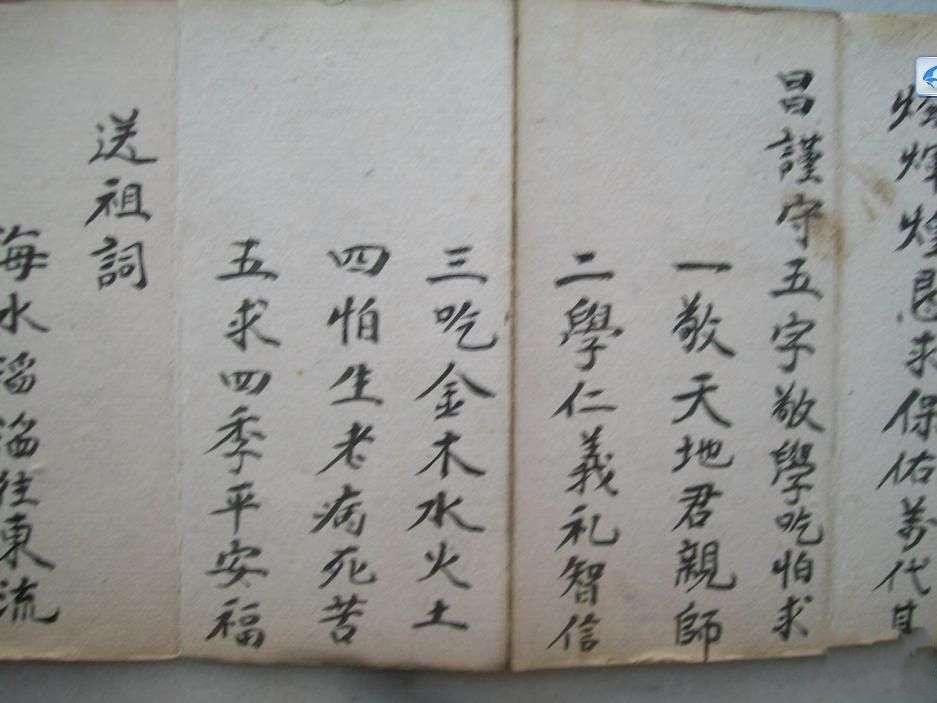 煇煌恳求保佑萬代
昌謹守五字敬學吃怕求
一敬天地君親師
二學仁義礼智信
三吃金木水火土
四怕生老病死苦
五求四季平安福
送祖詞
海水滔滔往東流